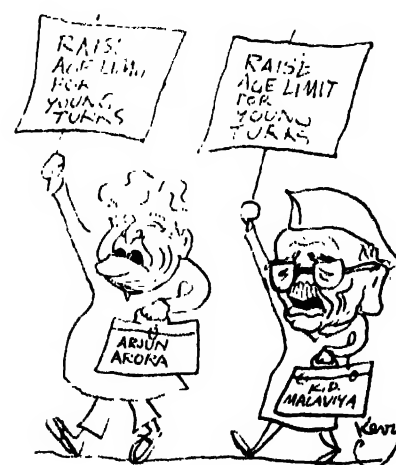 RAISE
AGE LIMIT
FOR
YOUNG
TURKS
RAISE
AGE LIMIT
FOR
YOUNG
TURKS
ARJUN
ARORA
K.D.
MALAVIYA